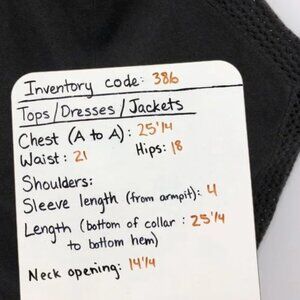 Inventory code: 386
Tops/Dresses/Jackets
Chest (A to A): 25 1/4
Waist: 21 Hips: 18
Shoulders:
Sleeve length (from armpit): 4
Length (bottom of collar : 25 1/4
to bottom hem)
Neck opening: 14 1/4